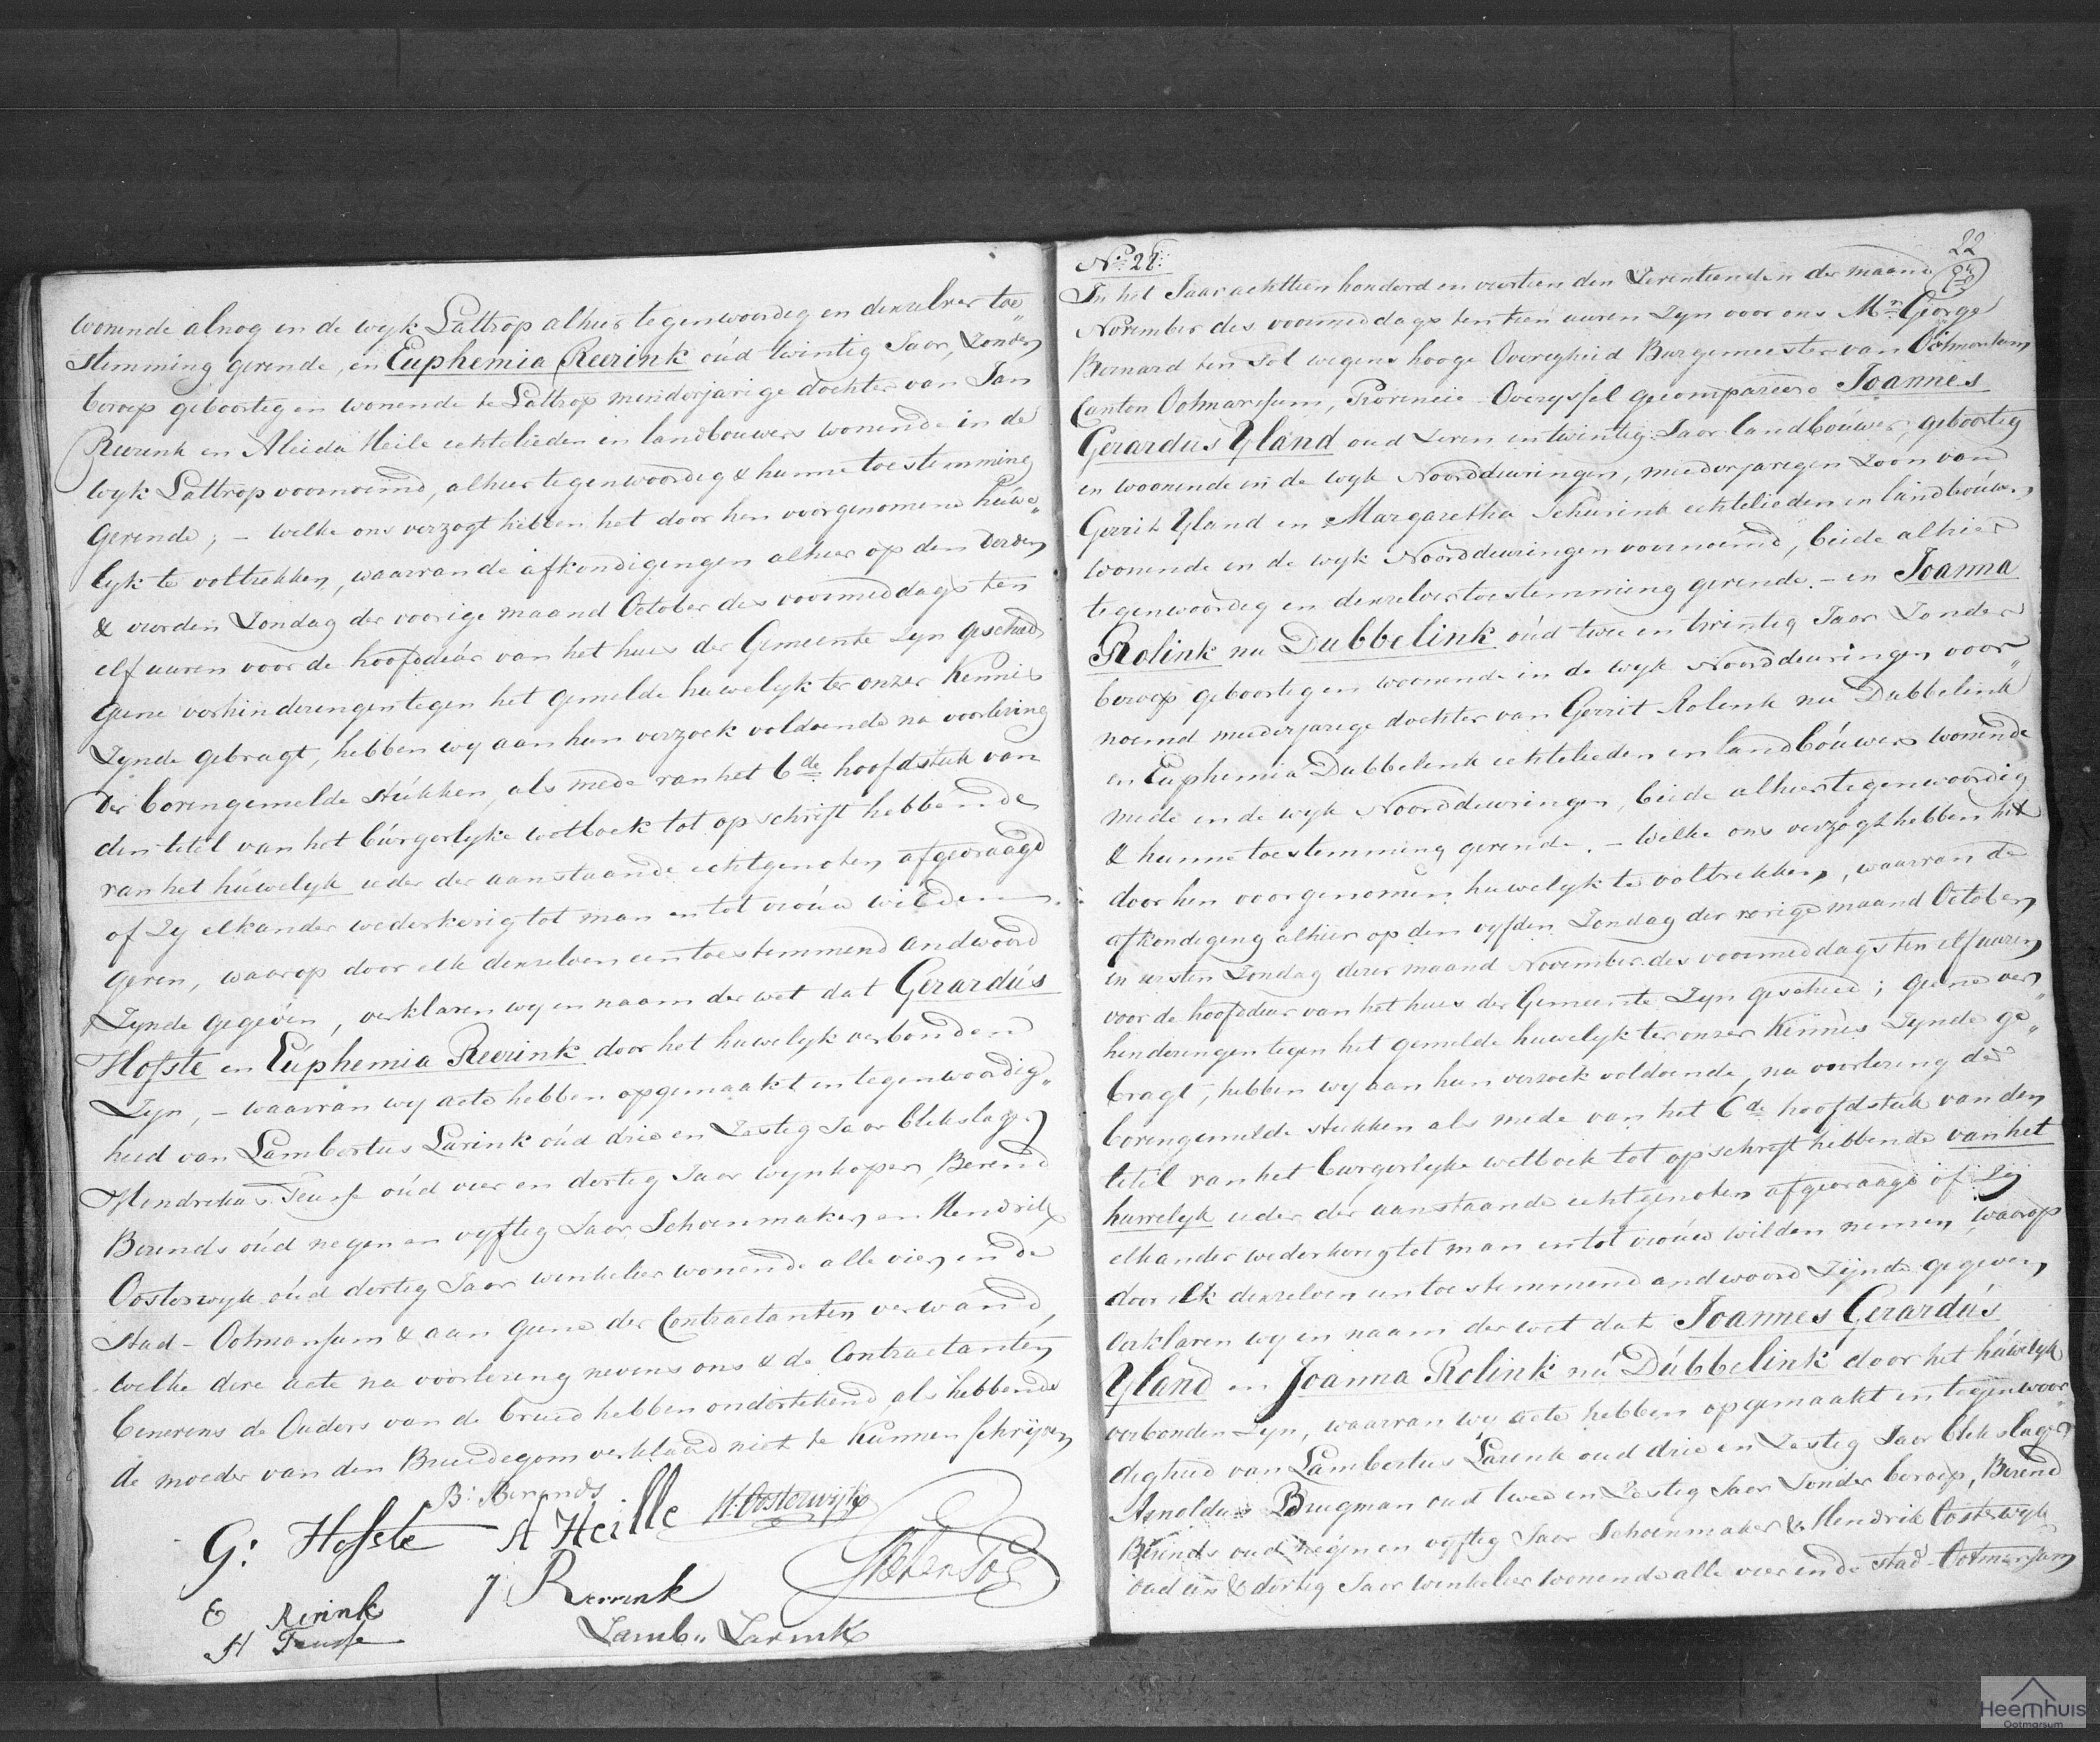 wonende alnog in de wyk Lattrop alhier tegenwoordig en derzelver toe„
stemming gevende, en Euphemia Reerink oúd twintig Jaar, Zonder
beroep geboortig en wonende te Lattrop minderjarige dochter van Jan
Reerink en Aleida Heile echtelieden en landbouwers wonende in de
wyk Lattrop voornoemd, alhier tegenwoordig & hunne toestemming
gevende; – welke ons verzogt hebben het door hen voorgenomene húwe„
lyk te voltrekken, waarvan de afkondigingen alhier op den derden
& vierden Zondag der voorige maand October des voormeddags ten
elf uuren voor de hoofddeúr van het huis der Gemeente zyn geschied,
geene verhinderingen tegen het gemelde huwelyk ter onzer kennis
Zynde gebragt, hebben wy aan hun verzoek voldoende na voorlezing
der bovengemelde stúkken, als mede van het 6de hoofdstuk van
den titel van het búrgerlyke wetboek tot opschrift hebbende
van het húwelyk ieder der aanstaande echtgenoten afgevraagd
of zy elkander wederkerig tot man en tot vroúw wilden
geven, waarop door elk derzelven een toestemmend andwoord
Zynde gegeven, verklaren wy in naam der wet dat Gerardús
Hofste en Eúphemia Reerink door het huwelyk verbonden
Zyn, – waarvan wy acte hebben opgemaakt in tegenwoordig„
heid van Lambertus Larink oúd drie en Zestig Jaar blekslager,
Hendrikus Teusse oúd vier en dertig Jaar wynkoper, Berend
Berends oúd negen en vyftig Jaar Schoenmaker en Hendrik
Oosterwyk oúd dertig Jaar winkelier wonende alle vier in de
Stad – Ootmarsum & aan geene der Contractanten verwand,
welke deze acte na voorlezing nevens ons & de Contractanten
benevens de Ouders van de bruid hebben ondertekend, als hebbende
de moeder van den Bruidegom verklaard niet te kunnen schrijven,
B: Berends
G: Hofste A Heille H. Oosterwijk
E Rerink J Rerrink
H Teusse Lamb„ Larink
22
No: 21:
In het Jaar achttien honderd en veertien den Zeventienden der maand
November des voormeddags ten tien uuren Zyn voor ons Mr. George
Bernard ten Pol wegens hooge Overigheid Burgemeester van Ootmarsum
Canton Ootmarssum, Provincie Overyssel gecompareerd Joannes
Gerardus Yland oud Zeven en twintig Jaar landboúwer, geboortig
en woonende in de wyk Noorddeuringen, meerderjarigen Zoon van
Gerrit Yland en Margaretha Schurink echtelieden en landboúwers
woonende in de wyk Noorddeuringen voornoemd, beide alhier
tegenwoordig en derzelver toestemming gevende. – en Joanna
Rolink nu Dubbelink oúd twee en twintig Jaar Zonder
beroep geboortig en woonende in de wyk Noorddeuringen voor„
noemd meerderjarige dochter van Gerrit Rolink nu Dubbelink
en Euphemia Dubbelink echtelieden en landboúwers wonende
mede in de wyk Noorddeuringen beide alhier tegenwoordig
& hunne toestemming gevende. – Welke ons verzogt hebben het
door hen voorgenomen huwelyk te voltrekken, waarvan de
afkondiging alhier op den vyfden Zondag der vorige maand October
en eersten Zondag dezer maand November des voormeddags ten elf uuren
voor de hoofddeur van het huis der Gemeente Zyn geschied; geene ver„
hinderingen tegen het gemelde huwelyk ter onzer kennis Zynde ge„
bragt, hebben wy aan hun verzoek voldoende, na voorlezing der
bovengemelde stukken als mede van het 6de hoofdstuk van den
titel van het burgerlyke wetboek tot opschrift hebbende van het
huwelyk ieder der aanstaande echtgenoten afgevraagd of zy
elkander wederkerig tot man en tot vroúw wilden nemen, waarop
door elk derzelven een toestemmend andwoord Zijnde gegeven,
verklaren wy in naam der wet dat Joannes Gerardús
Yland en Joanna Rolink nú Dúbbelink door het húwelyk
verbonden Zyn, waarvan wy acte hebben opgemaakt in tegenwoor„
digheid van Lambertus Larink oud drie en Zestig Jaar blekslager,
Arnoldus Brugman oud twee en Zestig Jaar Zonder beroep, Berend
Berends oud negen en vyftig Jaar Schoenmaker & Hendrik Oosterwyk
oud een & dertig Jaar winkelier wonende alle vier in de stad Ootmarsum
Heemhuis
Ootmarsum